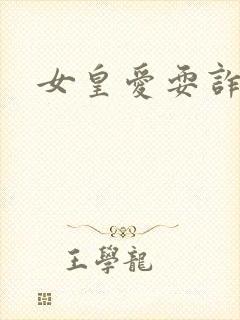 女皇愛耍詐
王學龍